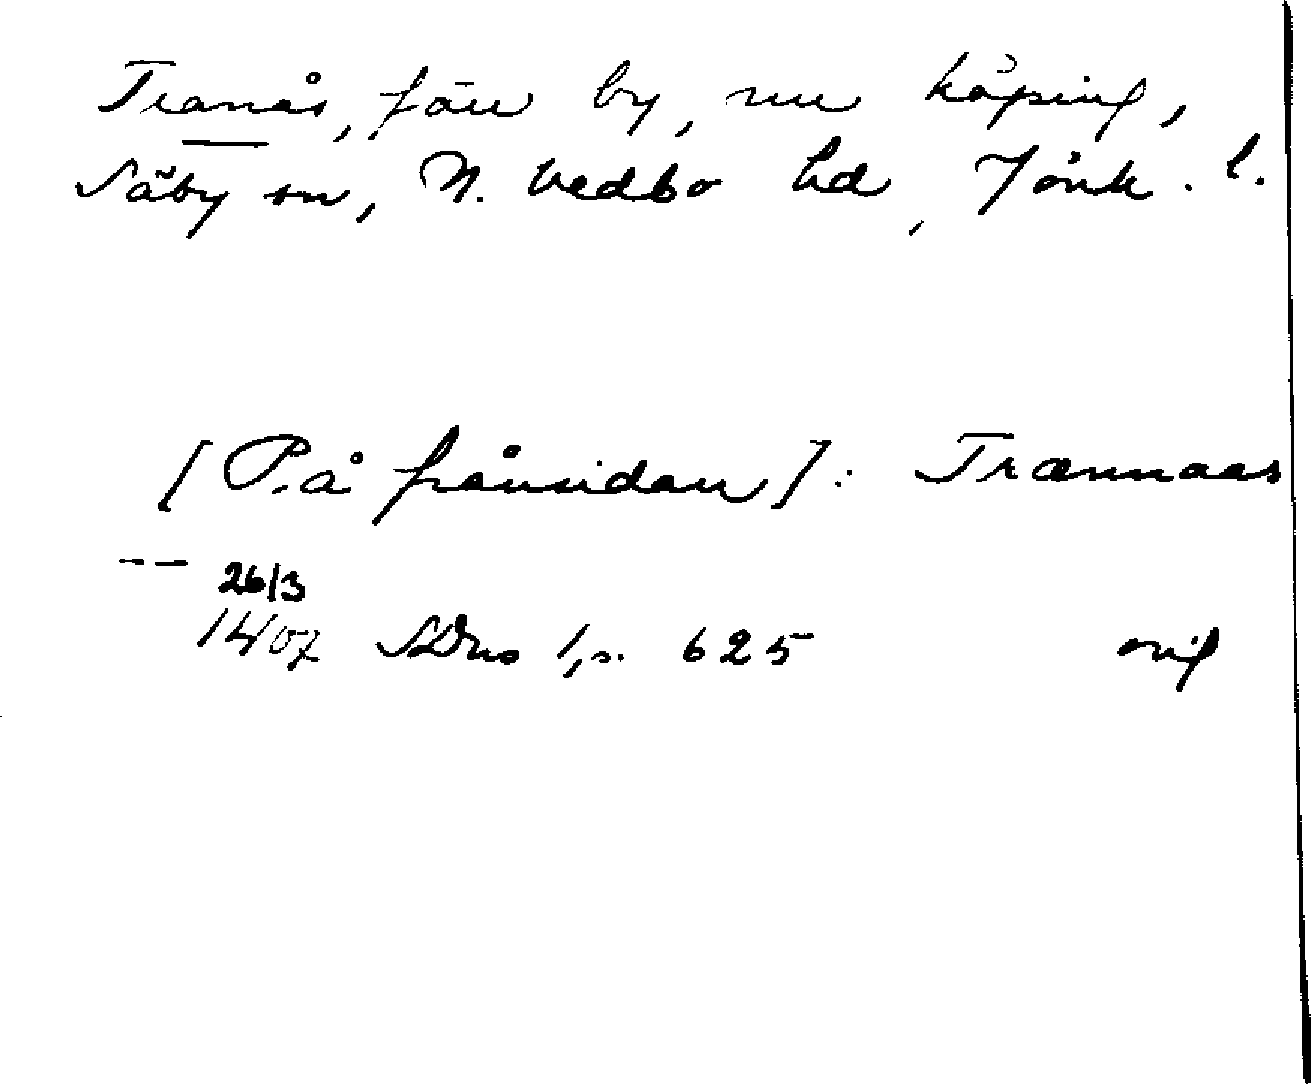 Tranås, förr by, nu köping,
Säby sn, N. Vedbo hd, Jönk. l.
[På frånsidan]: Trænnaas
-- 26/3
1407 SDns 1, s. 625 orig